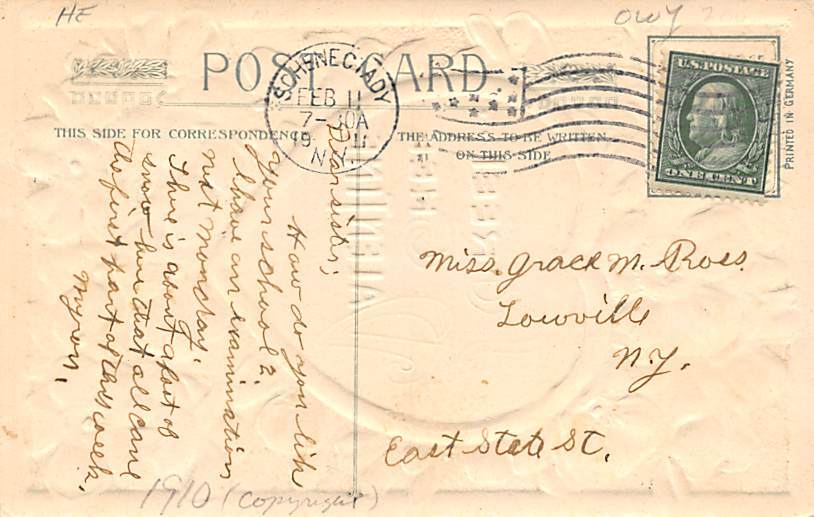 HE
OWY
POST CARD
SCHENECTADY
FEB 11
7-30A
1911
N.Y.
U.S. POSTAGE
ONE CENT
PRINTED IN GERMANY
THIS SIDE FOR CORRESPONDENCE
THE ADDRESS TO BE WRITTEN
ON THIS SIDE
Dear sister;
How do you like
your school?
I have an examination
next monday.
There is about a foot of
snow here that all came
the first part of this week.
Myron.
Miss. Grace M. Ross
Lowville
N.Y.
East State St.
1910 (copyright)